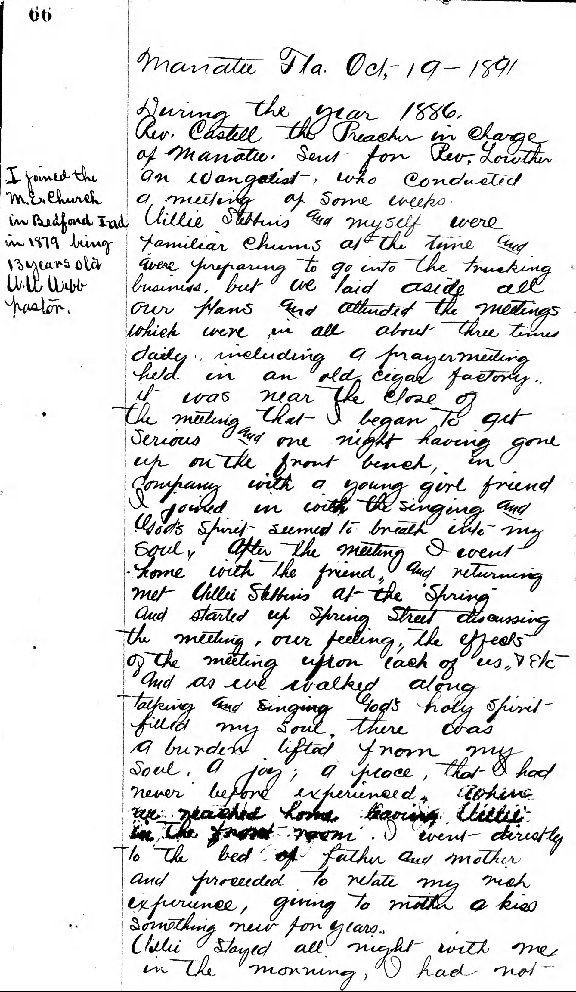 66
Manatee Fla. Oct, 19 - 1891
During the year 1886.
Rev. Castell the Preacher in charge
of Manatee. Sent for Rev. Lowther
an evangelist, who conducted
a meeting of some weeks.
Willie Stebbins and myself were
familiar chums at the time and
were preparing to go into the trucking
business, but we laid aside all
our plans and attended the meetings
which were in all about three times
daily, including a prayermeeting
held in an old cigar factory.
it was near the close of
the meeting that I began to get
serious and one night having gone
up on the front bench, in
company with a young girl friend
I joined in with the singing and
God's spirit seemed to breath into my
soul, After the meeting I went
home with the friend, and returning
met Willie Stebbins at the Spring
and started up Spring Street discussing
the meeting, our feeling, the effects
of the meeting upon each of us, & etc
And as we walked along
talking and singing God's holy spirit
filled my soul, there was
a burden lifted from my
soul. A joy, a peace, that I had
never before experienced, When
we reached home leaving Willie
in the front room. I went directly
to the bed of father and mother
and proceeded to relate my rich
experience, giving to mother a kiss
something new for years.
Willie stayed all night with me,
in the morning, I had not
I joined the
M.E. Church
in Bedford Ind
in 1879 being
13 years old
W.W. Webb
pastor.